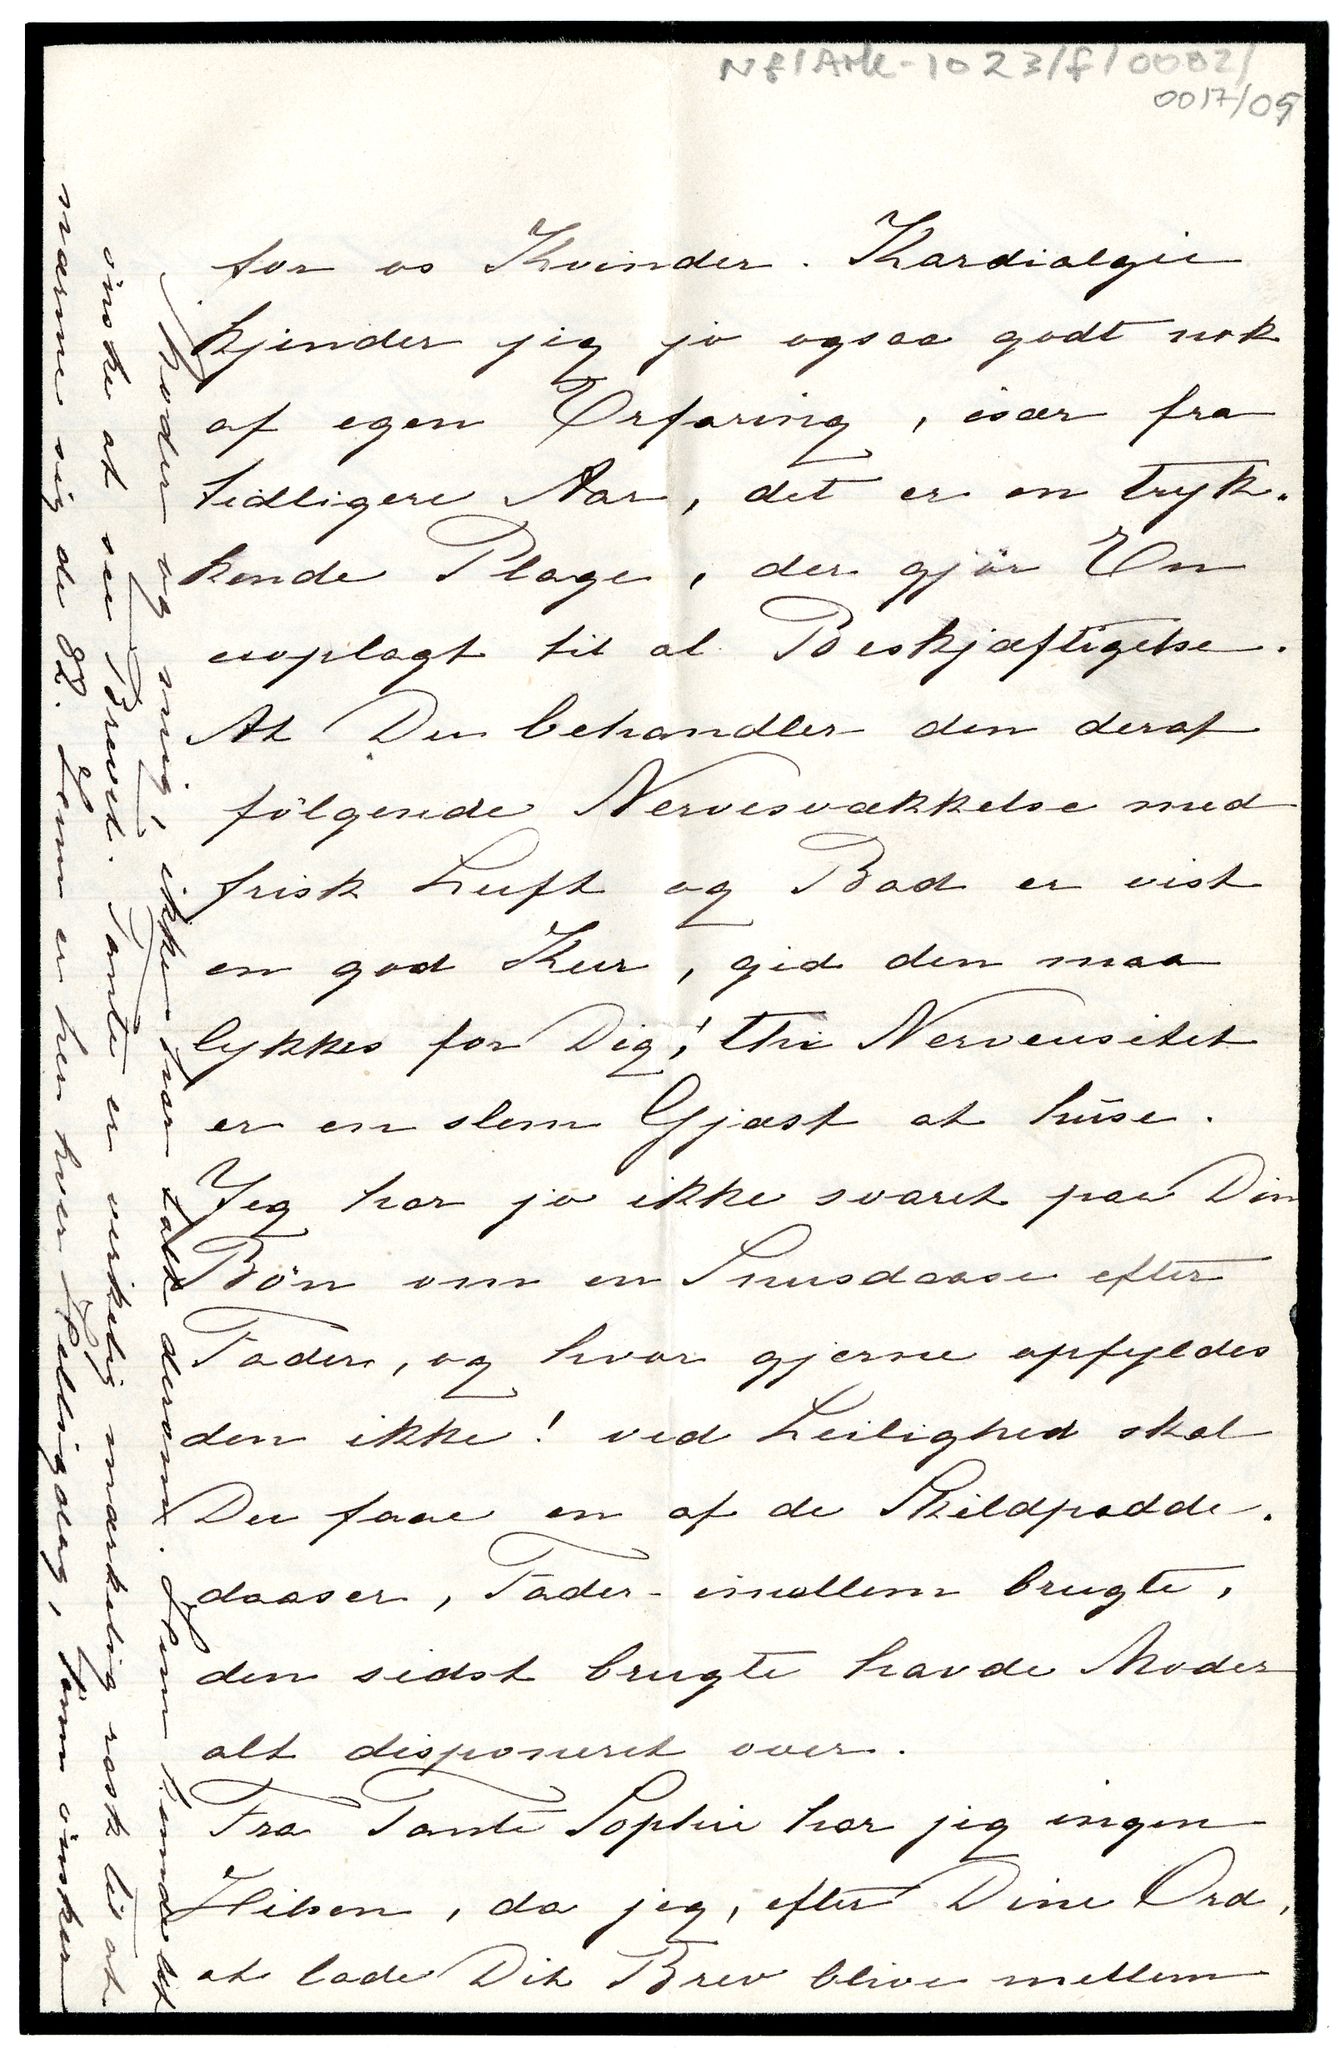 NF/Ark-1023/f/0002/
0017/05
for os Kvinder. Kardialgie
kjender jeg jo ogsaa godt nok
af egen Erfaring, især fra
tidligere Aar, det er en tryk-
kende Plage, der gjör En
uoplagt til al Beskjæftigelse.
At Du behandler den deraf
fölgende Nervesvækkelse med
frisk Luft og Bad er vist
en god Kur, gid den maa
lykkes for Dig! thi Nerveusitet
er en slem Gjæst at huse.
Jeg har jo ikke svaret paa Din
Bön om en Snusdaase efter
Fader, og hvor gjerne opfyldes
den ikke! ved Leilighed skal
Du faae en af de Skildpadde-
daaser, Fader imellem brugte,
den sidst brugte havde Moder
alt disponeret over.
Fra Tante Sophie har jeg ingen
Hilsen, da jeg, efter Dine Ord,
at lade Dit Brev blive mellem
Moder og mig, ikke har talt derom. Hun kunde let
önske at see Brevet. Tante er virkelig mærkelig rask til at
nærme sig de 82. Hun er her hver Helligdag, som önsker